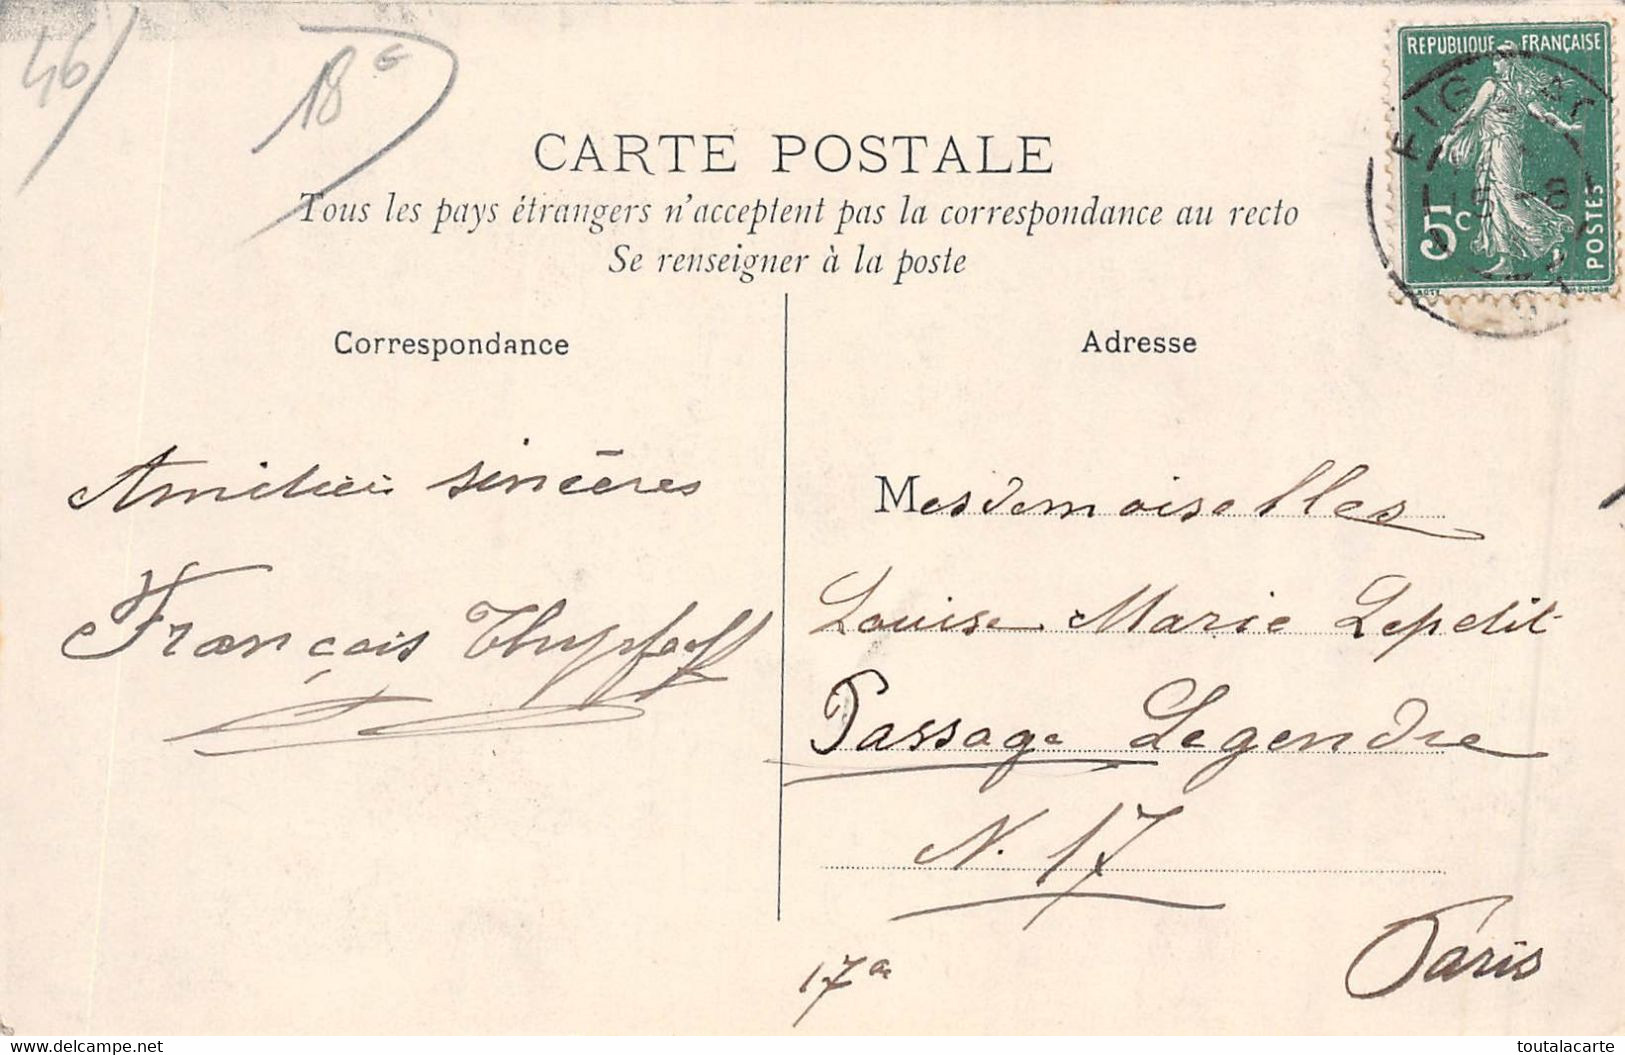 46
18 €
REPUBLIQUE FRANÇAISE
5c
POSTES
FIGEAC
LOT
CARTE POSTALE
Tous les pays étrangers n'acceptent pas la correspondance au recto
Se renseigner à la poste
Correspondance
Adresse
Amitiés sincères
François
Mesdemoiselles
Louise Marie Lepetit
Passage Legendre
N. 17
17e
Paris
www.delcampe.net
toutalacarte